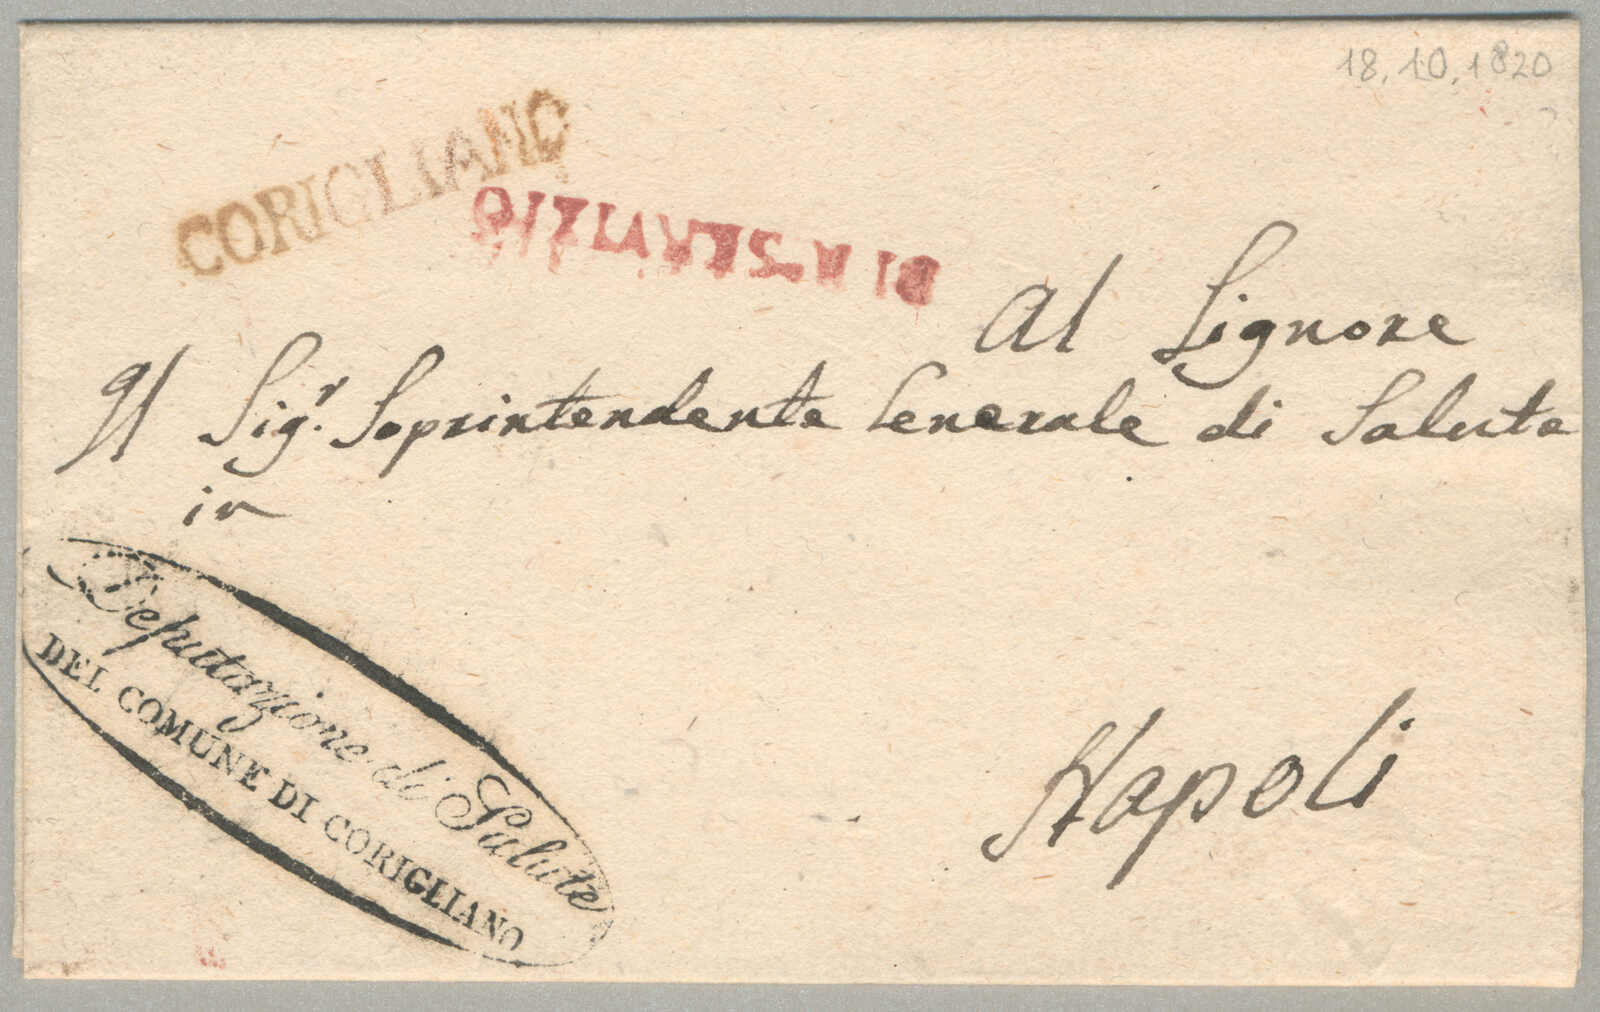 18.10.1820
CORIGLIANO
DI R. SERVIZIO
Al Signore
Il Sig.r Soprintendente Generale di Salute
in
Napoli
Deputazione di Salute
DEL COMUNE DI CORIGLIANO